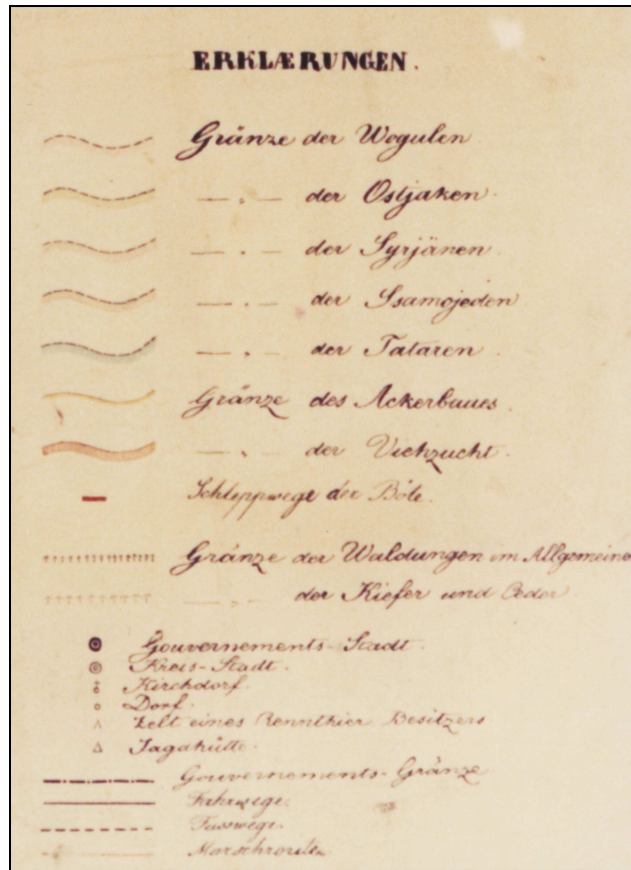 ERKLÆRUNGEN.
Gränze der Wogulen
— „ — der Ostjaken.
— „ — der Syrjänen.
— „ — der Ssamojeden
— „ — der Tataren.
Gränze des Ackerbaues.
— „ — der Viehzucht.
Schleppwege der Böte.
Gränze der Waldungen im Allgemeine
— „ — der Kiefer und Ceder.
Gouvernements-Stadt.
Kreis-Stadt.
Kirchdorf.
Dorf.
Zelt eines Rennthier Besitzers
Jagdhütte.
Gouvernements-Gränze
Fahrwege.
Fusswege.
Marschrouten